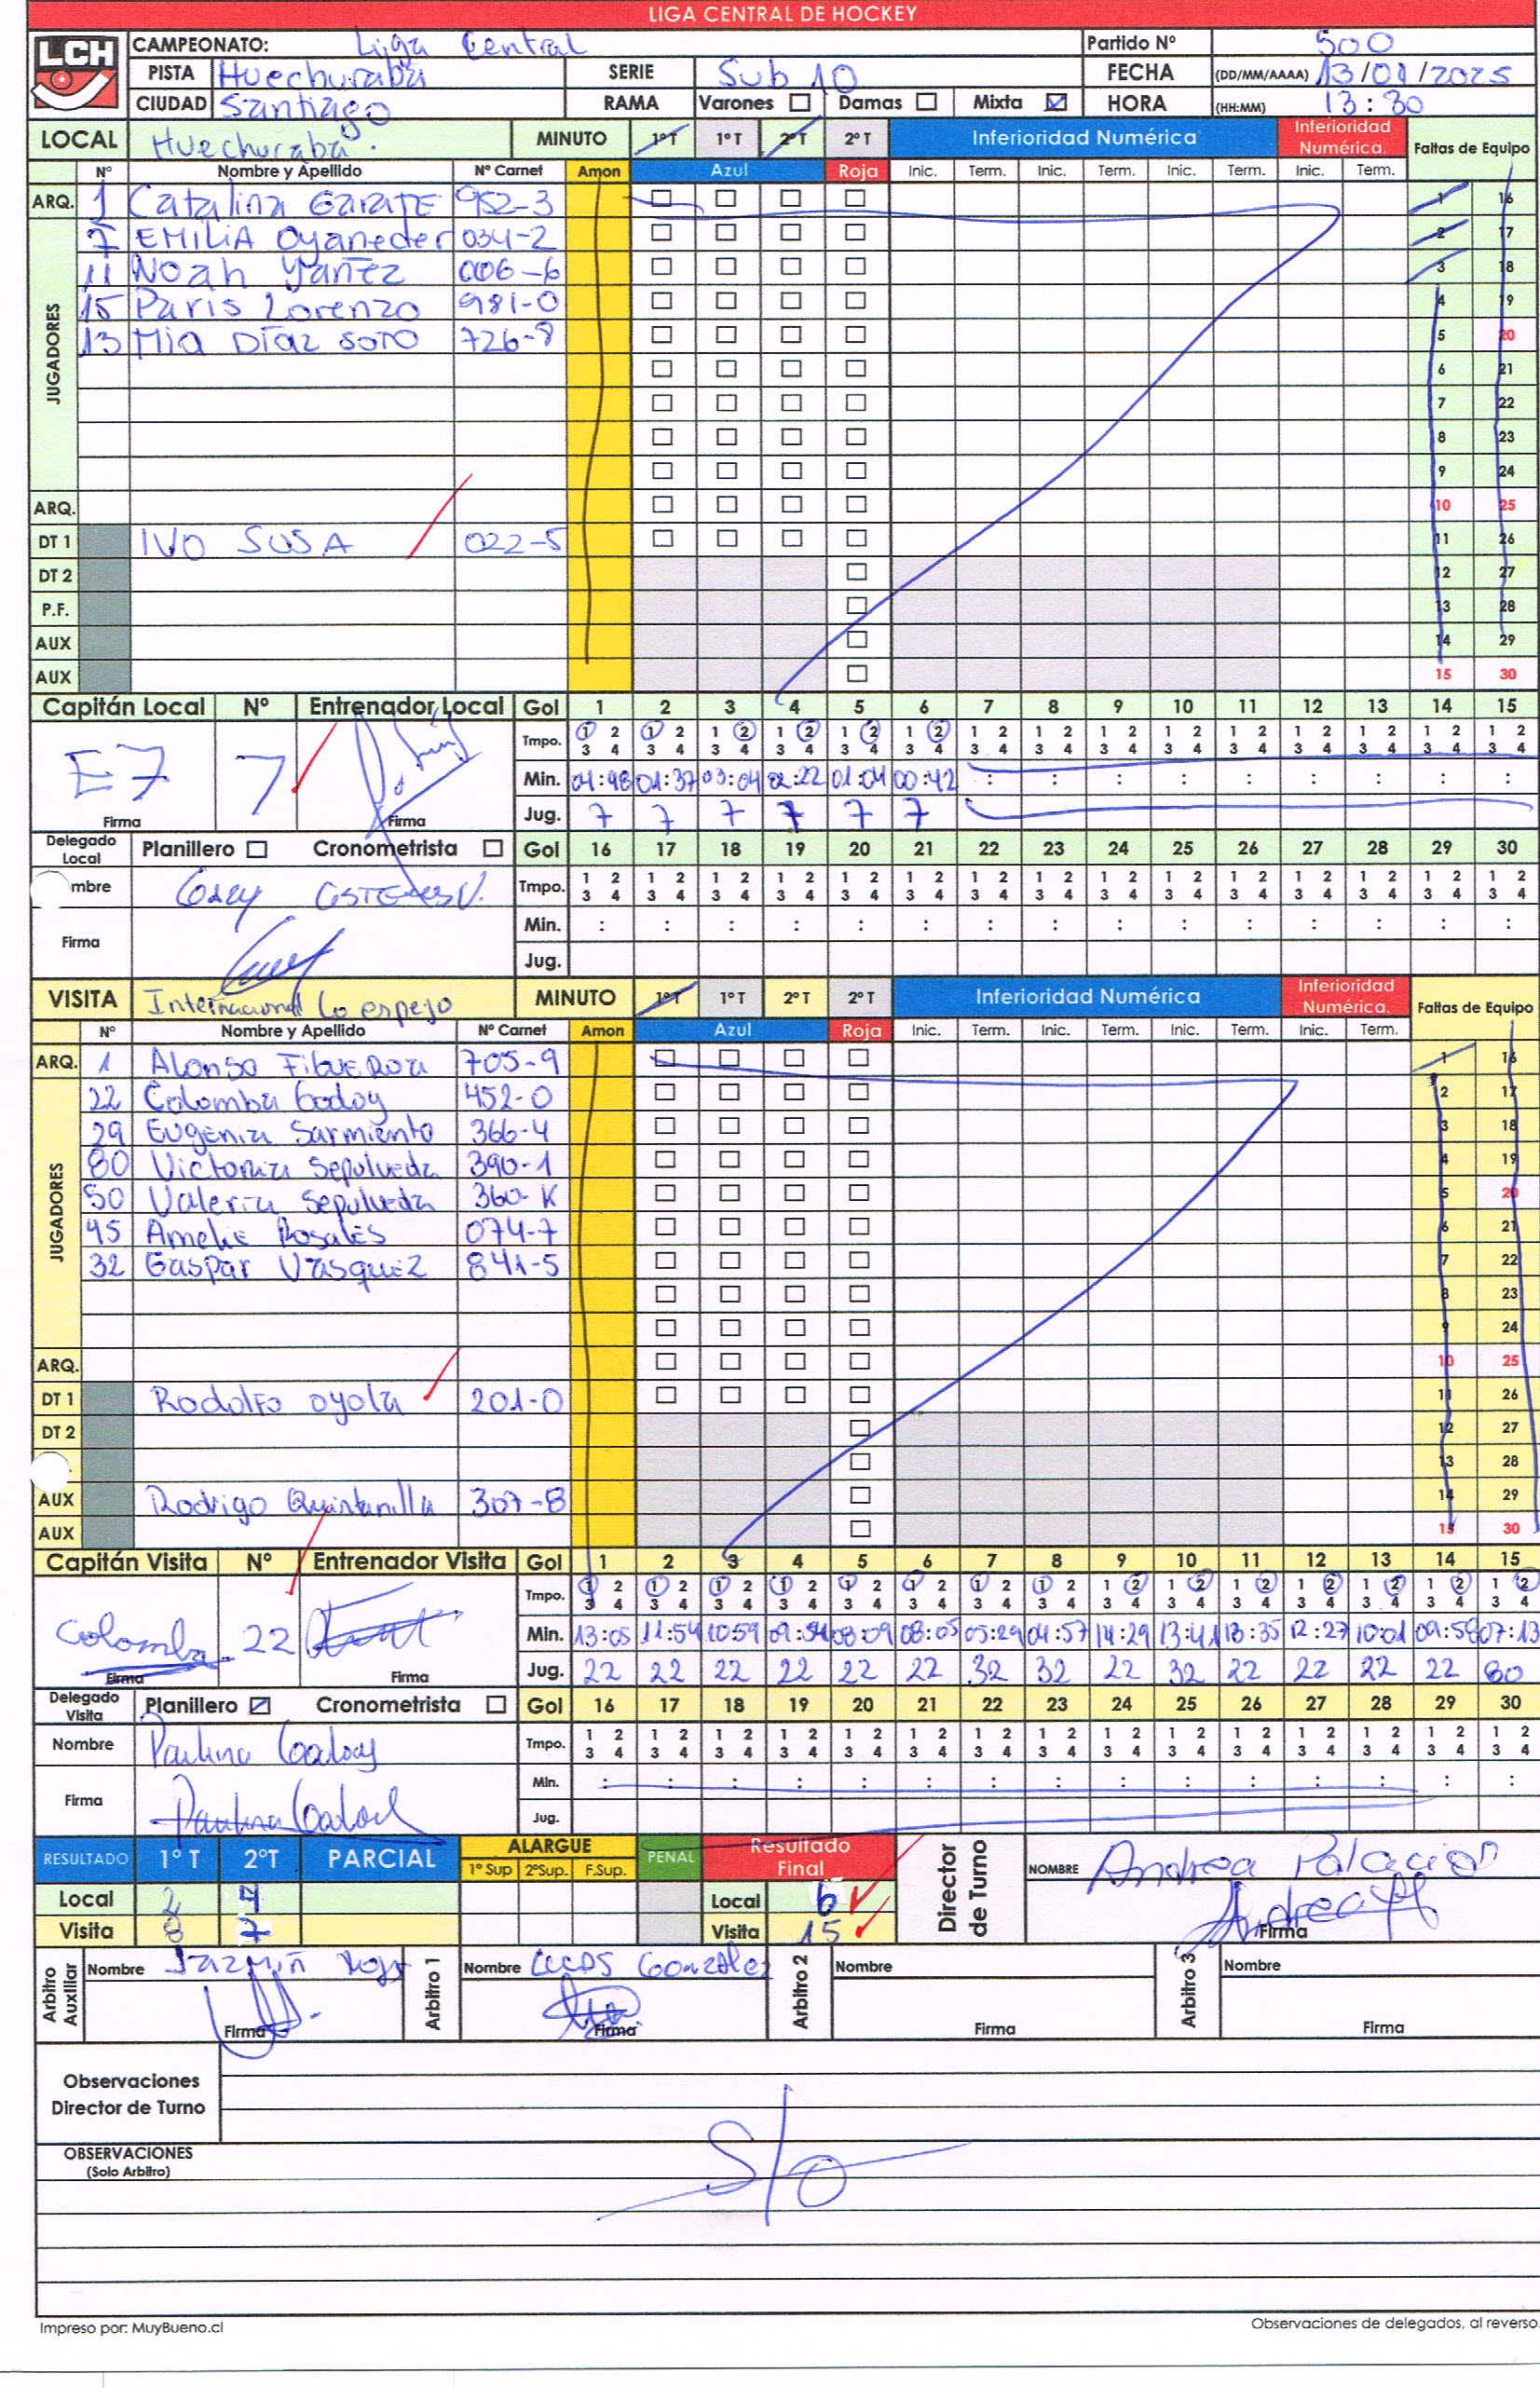 LIGA CENTRAL DE HOCKEY
LCH CAMPEONATO: Liga Central Partido Nº 500
PISTA Huechuraba SERIE Sub 10 FECHA (DD/MM/AAAA) 13/01/2025
CIUDAD Santiago RAMA Varones Damas Mixta HORA (HH:MM) 13:30
LOCAL Huechuraba. MINUTO 1º T 1º T 2º T 2º T Inferioridad Numérica Inferioridad Numérica. Faltas de Equipo
Nº Nombre y Apellido Nº Carnet Amon Azul Roja Inic. Term. Inic. Term. Inic. Term. Inic. Term.
ARQ. 1 Catalina GARATE 952-3 1 16
JUGADORES
7 EMILIA Oyaneder 034-2 2 17
11 Noah Yañez 006-6 3 18
15 Paris Lorenzo 981-0 4 19
13 Mia Díaz SOTO 726-8 5 20
6 21
7 22
8 23
9 24
ARQ. 10 25
DT 1 IVO SUSA 022-5 11 26
DT 2 12 27
P.F. 13 28
AUX 14 29
AUX 15 30
Capitán Local Nº Entrenador Local Gol 1 2 3 4 5 6 7 8 9 10 11 12 13 14 15
Tmpo. 1 2 1 2 1 2 1 2 1 2 1 2 1 2 1 2 1 2 1 2 1 2 1 2 1 2 1 2 1 2
3 4 3 4 3 4 3 4 3 4 3 4 3 4 3 4 3 4 3 4 3 4 3 4 3 4 3 4 3 4
E7 7 Min. 04:48 01:37 03:04 02:22 01:04 00:42 : : : : : : : : :
Firma Firma Jug. 7 7 7 7 7 7
Delegado Local Planillero Cronometrista Gol 16 17 18 19 20 21 22 23 24 25 26 27 28 29 30
mbre Tmpo. 1 2 1 2 1 2 1 2 1 2 1 2 1 2 1 2 1 2 1 2 1 2 1 2 1 2 1 2 1 2
3 4 3 4 3 4 3 4 3 4 3 4 3 4 3 4 3 4 3 4 3 4 3 4 3 4 3 4 3 4
Firma Min. : : : : : : : : : : : : : : :
Jug.
VISITA Internacional Lo espejo MINUTO 1º T 1º T 2º T 2º T Inferioridad Numérica Inferioridad Numérica. Faltas de Equipo
Nº Nombre y Apellido Nº Carnet Amon Azul Roja Inic. Term. Inic. Term. Inic. Term. Inic. Term.
ARQ. 1 Alonso FiguEROa 705-9 1 16
JUGADORES
22 Colomba Godoy 452-0 2 17
29 Eugenia Sarmiento 366-4 3 18
80 Victoria Sepulveda 390-1 4 19
50 Valeria Sepulveda 360-K 5 20
45 Amelie Rosales 074-7 6 21
32 Gaspar Vasquez 841-5 7 22
8 23
9 24
ARQ. 10 25
DT 1 Rodolfo oyola 201-0 11 26
DT 2 12 27
13 28
AUX Rodrigo Quintanilla 307-8 14 29
AUX 15 30
Capitán Visita Nº Entrenador Visita Gol 1 2 3 4 5 6 7 8 9 10 11 12 13 14 15
Tmpo. 1 2 1 2 1 2 1 2 1 2 1 2 1 2 1 2 1 2 1 2 1 2 1 2 1 2 1 2 1 2
3 4 3 4 3 4 3 4 3 4 3 4 3 4 3 4 3 4 3 4 3 4 3 4 3 4 3 4 3 4
Colomba 22 Min. 13:05 11:54 10:59 09:54 08:09 08:05 05:29 04:57 14:29 13:41 13:35 12:27 10:01 09:58 07:13
Firma Firma Jug. 22 22 22 22 22 22 32 32 22 32 22 22 22 22 80
Delegado Visita Planillero Cronometrista Gol 16 17 18 19 20 21 22 23 24 25 26 27 28 29 30
Nombre Paulina Godoy Tmpo. 1 2 1 2 1 2 1 2 1 2 1 2 1 2 1 2 1 2 1 2 1 2 1 2 1 2 1 2 1 2
3 4 3 4 3 4 3 4 3 4 3 4 3 4 3 4 3 4 3 4 3 4 3 4 3 4 3 4 3 4
Firma Min. : : : : : : : : : : : : : : :
Jug.
RESULTADO 1º T 2ºT PARCIAL ALARGUE 1º Sup 2ºSup. F.Sup. PENAL Resultado Final Director de Turno NOMBRE Andrea Palacios
Local 2 4 Local 6
Visita 8 7 Visita 15 Firma
Arbitro Auxiliar Nombre Jazmín Arbitro 1 Nombre González Arbitro 2 Nombre Arbitro 3 Nombre
Firma Firma Firma Firma
Observaciones
Director de Turno
S/O
OBSERVACIONES
(Solo Arbitro)
Impreso por: MuyBueno.cl Observaciones de delegados, al reverso.